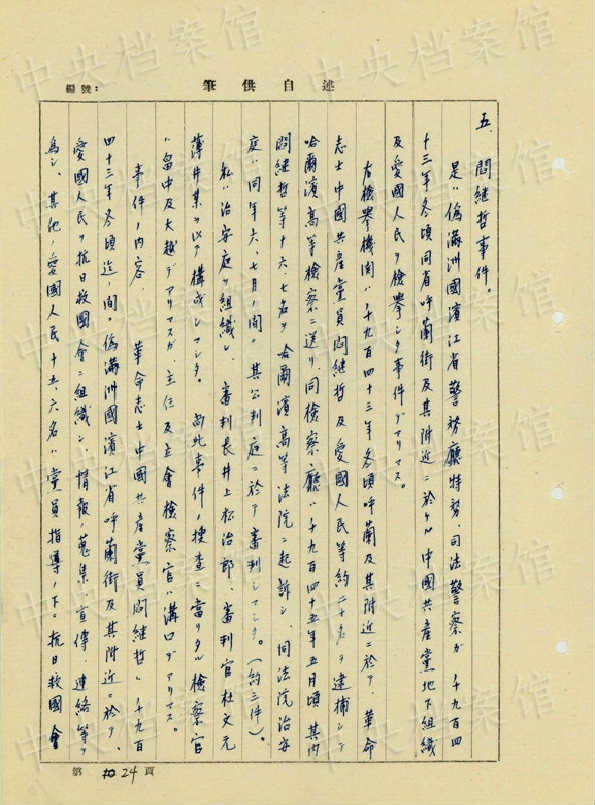 編號：
筆供自述
五、閻継哲事件。
是ハ偽滿洲國濱江省警務廳特務、司法警察ガ一千九百四
十三年冬頃同省呼蘭街及其附近ニ於ケル中國共產黨地下組織
及愛國人民ヲ檢擧シタ事件デアリマス。
右檢擧機関ハ一千九百四十三年冬頃呼蘭及其附近ニ於テ、革命
志士中國共產黨員閻継哲及愛國人民等約二十名ヲ逮捕シテ
哈爾濱高等檢察ニ送リ、同檢察廳ハ一千九百四十五年五月頃其内
閻継哲等十六、七名ヲ哈爾濱高等法院ニ起訴シ、同法院治安
庭ハ同年六、七月ノ間。其公判庭ニ於テ審判シマシタ。（約三件）。
私ハ治安庭ヲ組織シ、審判長井上松治郎、審判官杜文元
薄井某ヲ以テ構成シマシタ。尚此事件ノ搜查ニ當リタル檢察官
ハ畠中及大越デアリマスガ、主任及立會檢察官ハ溝口デアリマス。
事件ノ内容、革命志士中國共產黨員閻継哲ハ一千九百
四十三年冬頃迄ノ間。偽滿洲國濱江省呼蘭街及其附近ニ於テ、
愛國人民ヲ抗日救國會ニ組織シ、情報ノ蒐集、宣傳、連絡等ヲ
為シ、其他ノ愛國人民十五、六名ハ黨員指導ノ下ニ抗日救國會
中央档案馆
第 24 頁